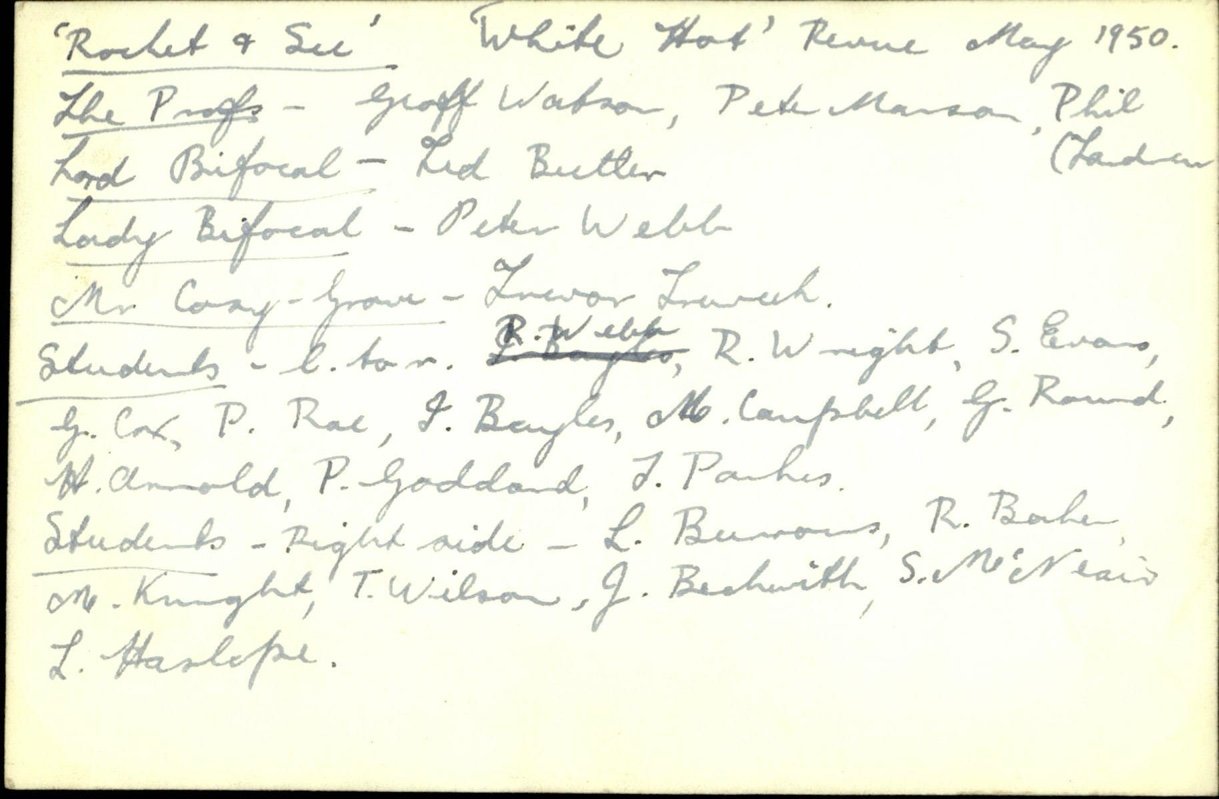 'Rocket & See' 'White Hot' Revue May 1950.
The Profs - Geoff Watson, Peter Manson, Phil
(Lardner
Lord Bifocal - Ted Butler
Lady Bifocal - Peter Webb
Mr Cosy-Grove - Trevor
Students - l. to r. R. Webb, R. Wright, S. Evans,
G. Cox, P. Rae, J. Bayles, M. Campbell, G. Round,
H. Arnold, P. Goddard, J. Parkes.
Students - Right side - L. Burrows, R. Baker,
M. Knight, T. Wilson, J. Beckwith, S. McNeair
L. Haslope.